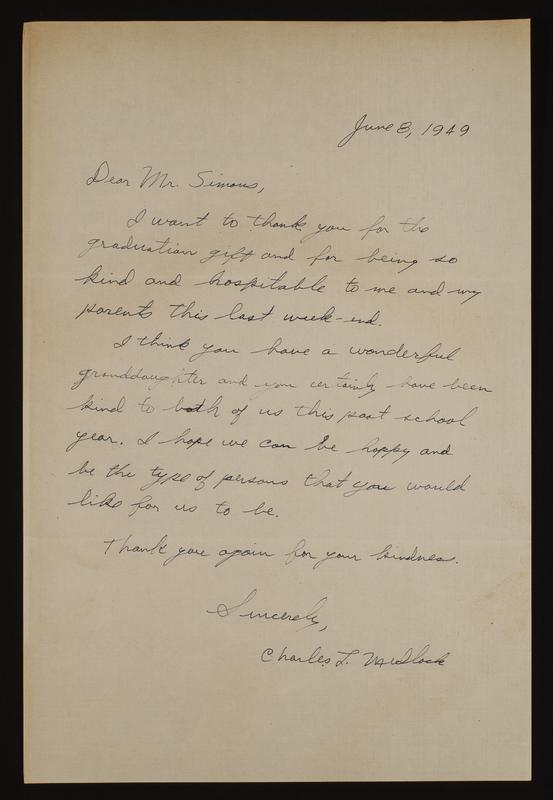 June 8, 1949
Dear Mr. Simons,
I want to thank you for the
graduation gift and for being so
kind and hospitable to me and my
parents this last week-end.
I think you have a wonderful
granddaughter and you certainly have been
kind to both of us this past school
year. I hope we can be happy and
be the type of persons that you would
like for us to be.
Thank you again for your kindness.
Sincerely,
Charles L.